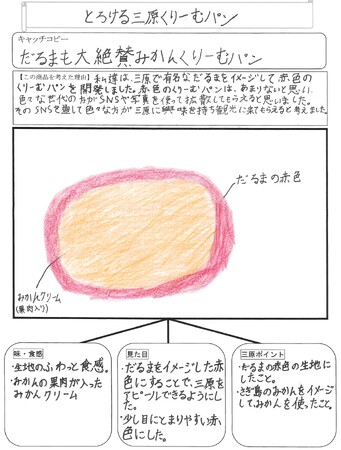 とろける三原くりーむパン
キャッチコピー
だるまも大絶賛みかんくりーむパン
【この商品を考えた理由】私達は、三原で有名なだるまをイメージして赤色の
くりーむパンを開発しました。赤色のくりーむパンは、あまりないと思い、
色々な世代の方がSNSや写真を使って拡散してもらえると思いました。
そのSNSを通して色々な方が三原に興味を持ち観光に来てもらえると考えました。
だるまの赤色
みかんクリーム
(果肉入り)
味・食感
・生地のふわっと食感。
・みかんの果肉が入った
みかんクリーム
見た目
・だるまをイメージした赤
色にすることで、三原を
アピールできるようにし
た。
・少し目にとまりやすい赤
色にした。
三原ポイント
・だるまの赤色の生地に
したこと。
・さぎ島のみかんをイメージ
してみかんを使ったこと。